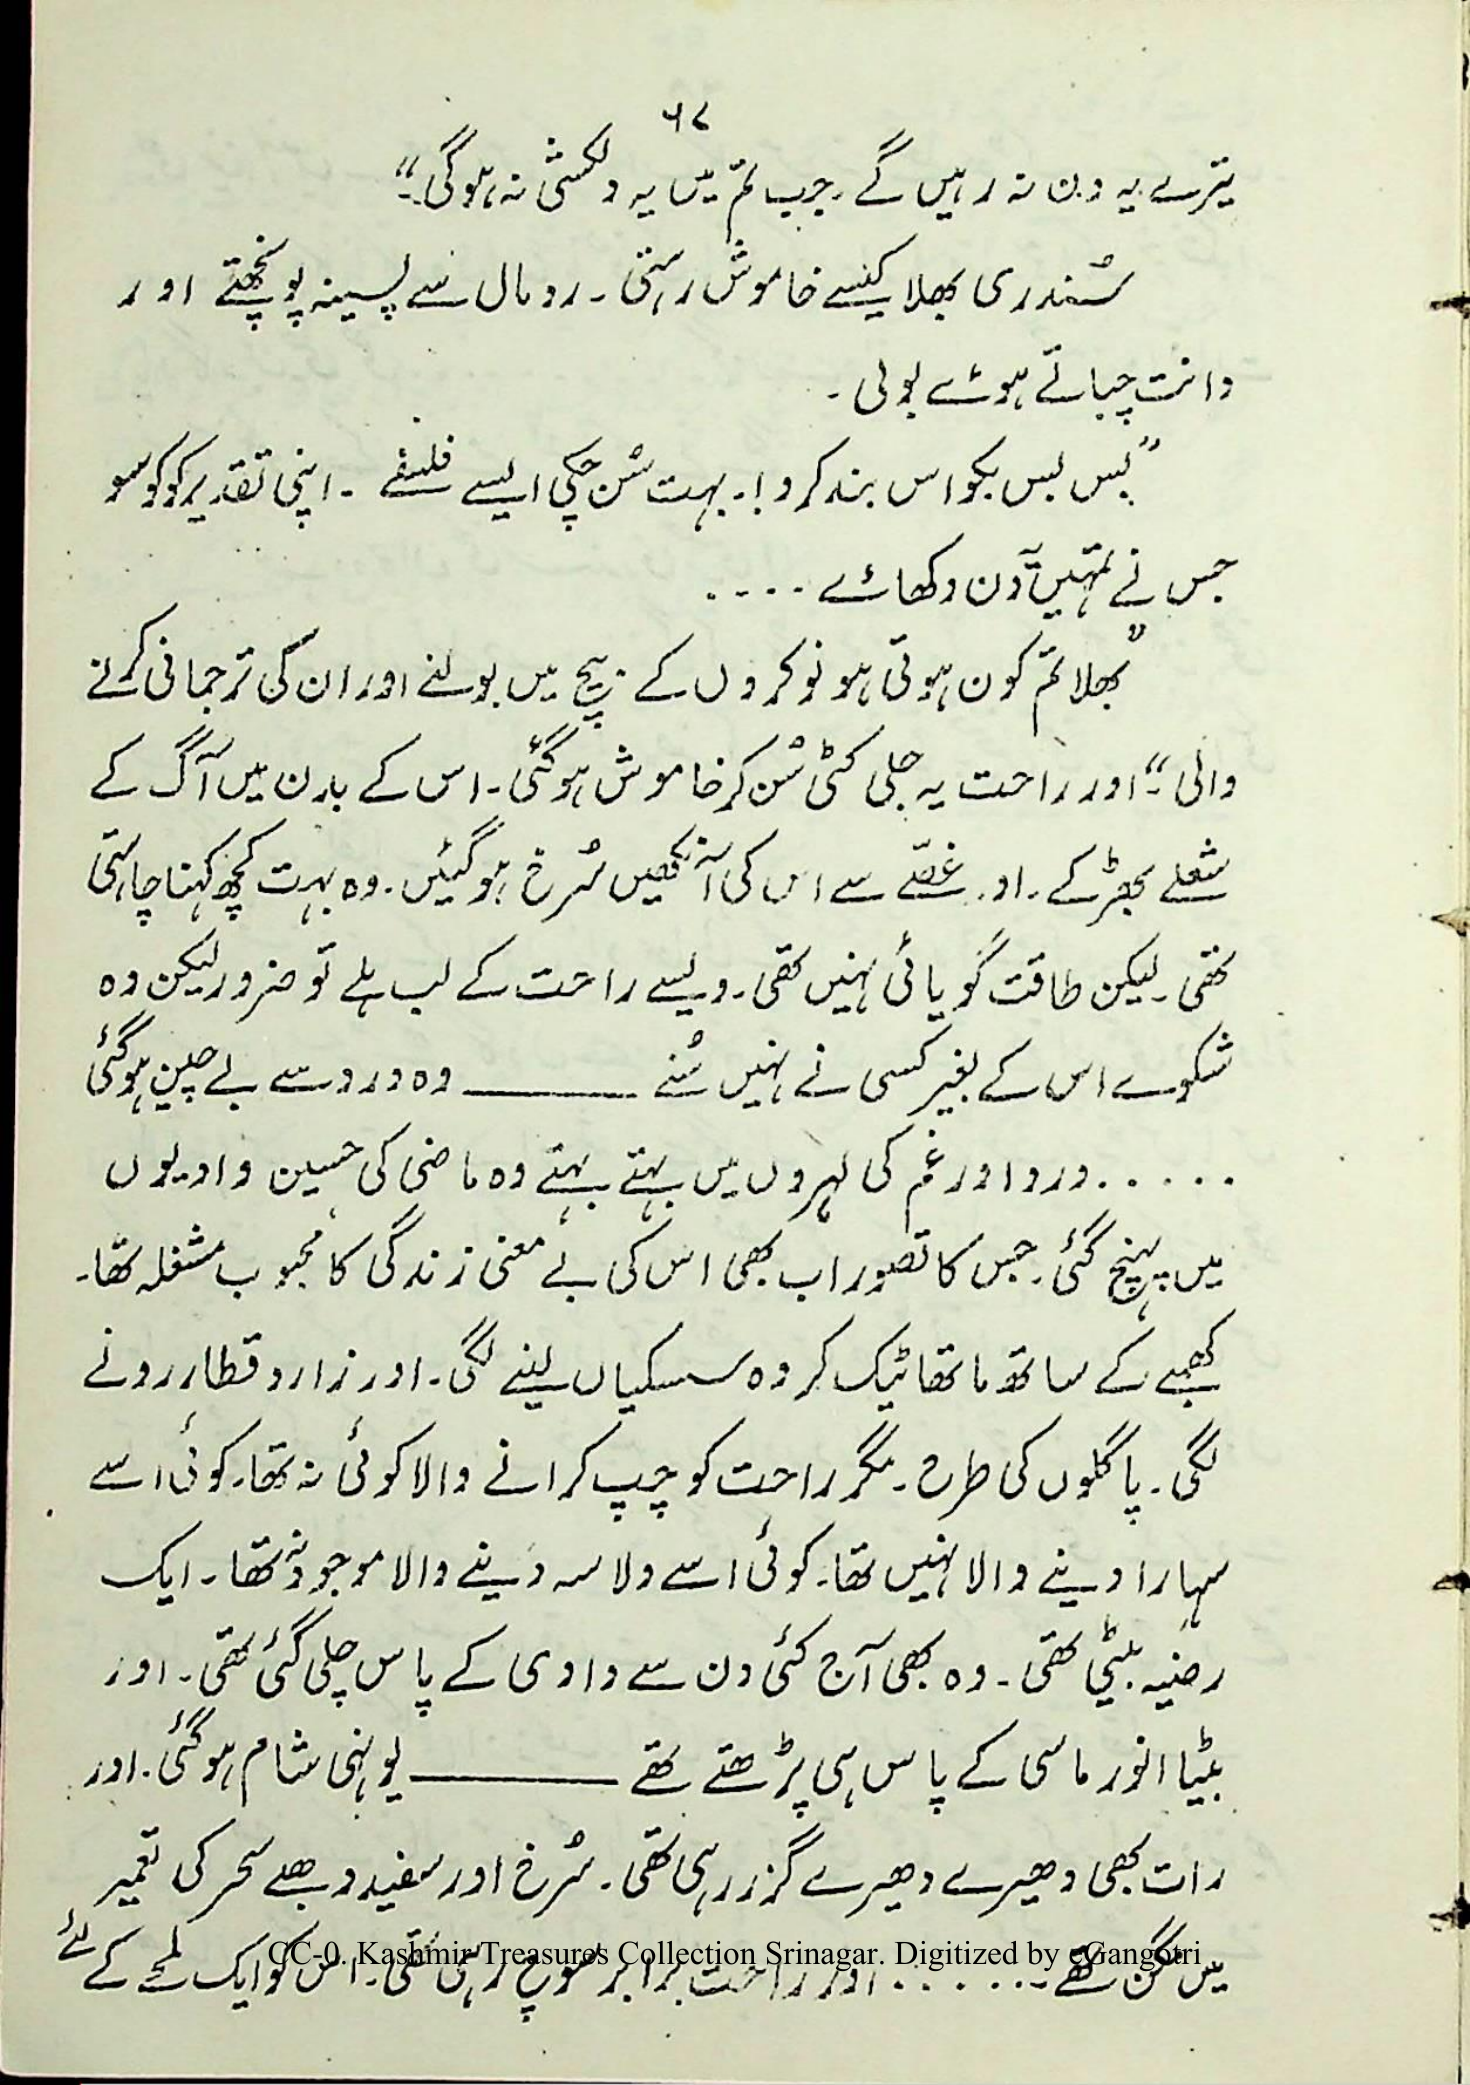 ۶۷
تیرے یہ دن نہ رہیں گے۔ جب تم میں یہ دلکشی نہ ہوگی۔“
سُندری بھلا کیسے خاموش رہتی۔ رومال سے پسینہ پونچھتے اور
دانت چباتے ہوئے بولی۔
”بس بس بکواس بند کرو!۔ بہت سُن چکی ایسے فلسفے۔ اپنی تقدیر کو کوسو
جس نے تمہیں یہ دن دکھائے ....
”بھلا تم کون ہوتی ہو نوکروں کے بیچ میں بولنے اور ان کی ترجمانی کرنے
والی“۔ اور راحت یہ جلی کٹی سُن کر خاموش ہوگئی۔ اس کے بدن میں آگ کے
شعلے بھڑکے۔ اور غصّے سے اس کی آنکھیں سُرخ ہوگئیں۔ وہ بہت کچھ کہنا چاہتی
تھی۔ لیکن طاقت گویائی نہیں تھی۔ ویسے راحت کے لب ہلے تو ضرور لیکن وہ
شکوے اس کے بغیر کسی نے نہیں سُنے ــــــــــ وہ درد سے بے چین ہوگئی
..... درد اور غم کی لہروں میں بہتے بہتے وہ ماضی کی حسین وادیوں
میں پہنچ گئی۔ جس کا تصور اب بھی اس کی بے معنی زندگی کا محبوب مشغلہ تھا۔
کھمبے کے ساتھ ماتھا ٹیک کر وہ سسکیاں لینے لگی۔ اور زار و قطار رونے
لگی۔ پاگلوں کی طرح۔ مگر راحت کو چپ کرانے والا کوئی نہ تھا۔ کوئی اسے
سہارا دینے والا نہیں تھا۔ کوئی اسے دلاسہ دینے والا موجود نہ تھا۔ ایک
رضیہ بیٹی تھی۔ وہ بھی آج کئی دن سے دادی کے پاس چلی گئی تھی۔ اور
بیٹا انور ماسی کے پاس ہی پڑھتے تھے ــــــــــ یونہی شام ہوگئی۔ اور
رات بھی دھیرے دھیرے گزر رہی تھی۔ سُرخ اور سفید دھبے سحر کی تعمیر
میں مگن تھے۔...... اور راحت برابر سوچ رہی تھی۔ اس کو ایک لمحے کے لئے
CC-0. Kashmir Treasures Collection Srinagar. Digitized by eGangotri